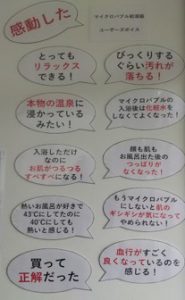 感動した
マイクロバブル給湯器
ユーザーズボイス
とっても
リラックス
できる!
びっくりする
ぐらい汚れが
落ちる!
本物の温泉に
浸かっている
みたい!
マイクロバブルの
入浴後は化粧水を
しなくてよくなった!
入浴しただけ
なのに
お肌がつるつる
すべすべになる!
顔も肌も
お風呂出た後の
つっぱりが
なくなった!
熱いお風呂が好きで
43℃にしてたのに
40℃にしても
熱いと感じる!
もうマイクロバブル
にしないと肌の
ギシギシが気になって
やめられない!
買って
正解だった
血行がすごく
良くなっているのを
感じる!